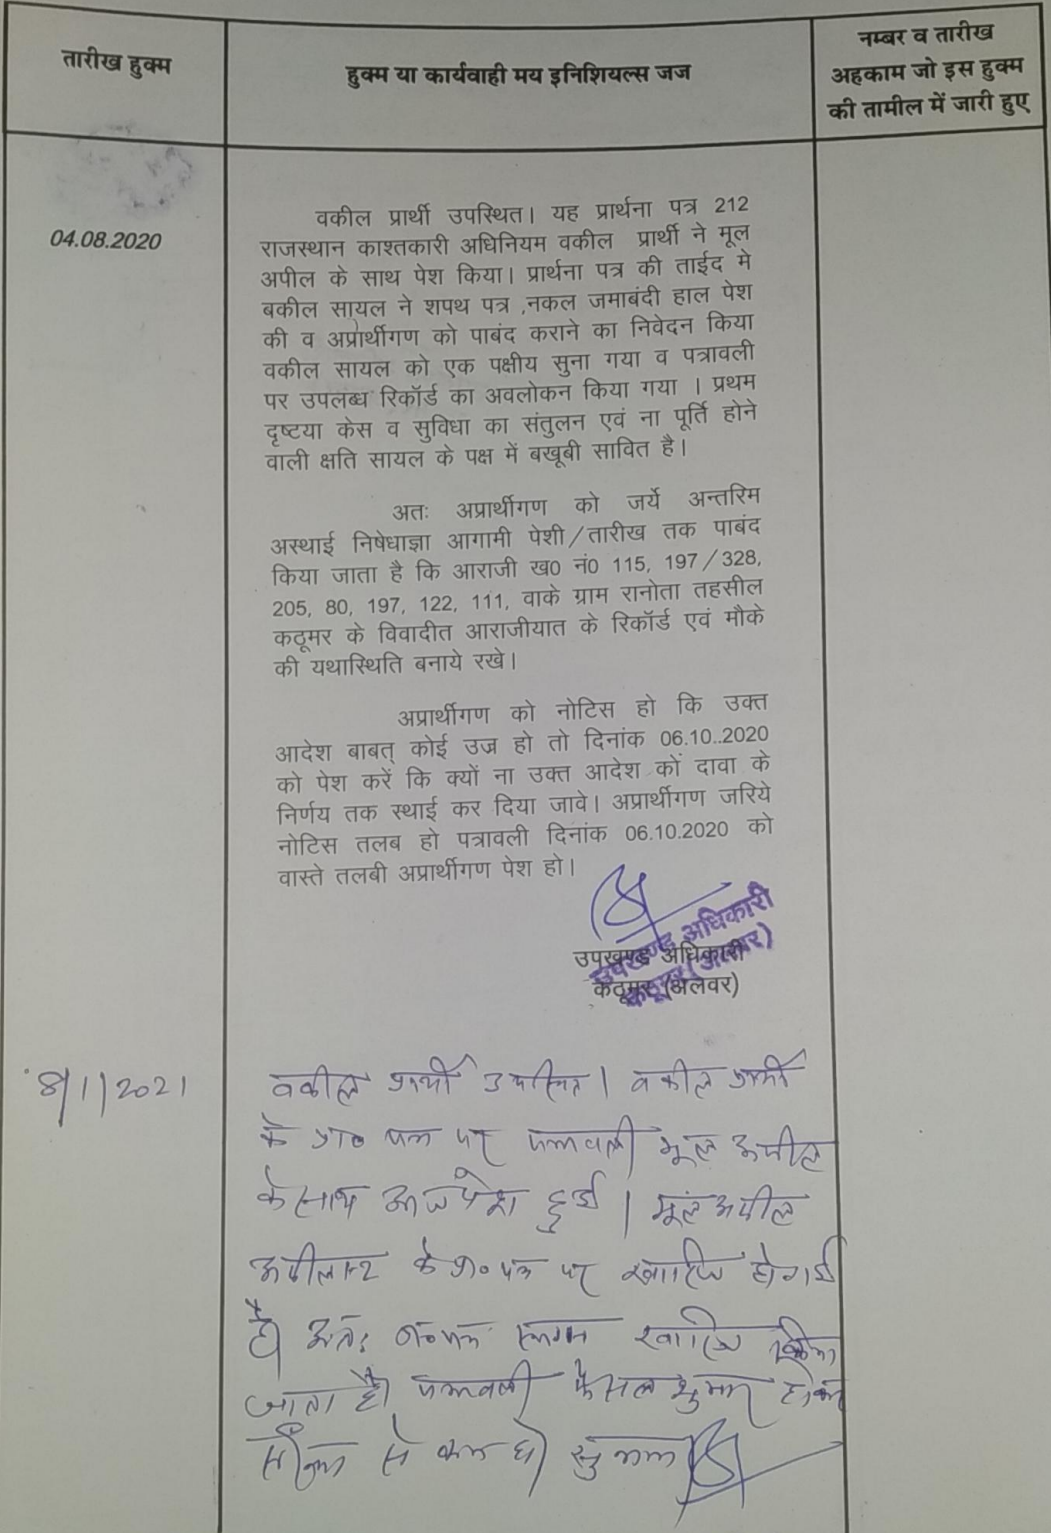 तारीख हुक्म
हुक्म या कार्यवाही मय इनिशियल्स जज
नम्बर व तारीख
अहकाम जो इस हुक्म
की तामील में जारी हुए
04.08.2020
वकील प्रार्थी उपस्थित। यह प्रार्थना पत्र 212
राजस्थान काश्तकारी अधिनियम वकील प्रार्थी ने मूल
अपील के साथ पेश किया। प्रार्थना पत्र की ताईद मे
बकील सायल ने शपथ पत्र ,नकल जमाबंदी हाल पेश
की व अप्रार्थीगण को पाबंद कराने का निवेदन किया
वकील सायल को एक पक्षीय सुना गया व पत्रावली
पर उपलब्ध रिकॉर्ड का अवलोकन किया गया । प्रथम
दृष्टया केस व सुविधा का संतुलन एवं ना पूर्ति होने
वाली क्षति सायल के पक्ष में बखूबी सावित है।
अतः अप्रार्थीगण को जर्ये अन्तरिम
अस्थाई निषेधाज्ञा आगामी पेशी/तारीख तक पाबंद
किया जाता है कि आराजी ख0 नं0 115, 197/328,
205, 80, 197, 122, 111, वाके ग्राम रानोता तहसील
कठूमर के विवादीत आराजीयात के रिकॉर्ड एवं मौके
की यथास्थिति बनाये रखे।
अप्रार्थीगण को नोटिस हो कि उक्त
आदेश बाबत् कोई उज्र हो तो दिनांक 06.10..2020
को पेश करें कि क्यों ना उक्त आदेश कों दावा के
निर्णय तक स्थाई कर दिया जावे। अप्रार्थीगण जरिये
नोटिस तलब हो पत्रावली दिनांक 06.10.2020 को
वास्ते तलबी अप्रार्थीगण पेश हो।
उपखण्ड अधिकारी
कठूमर (अलवर)
उपखण्ड अधिकारी
कठूमर (अलवर)
8/1/2021
वकील प्रार्थी उपस्थित। वकील प्रार्थी
के प्रा० पत्र पर पत्रावली मूल अपील
के साथ आज पेश हुई। मूल अपील
अपीलान्ट के प्रा० पत्र पर खारिज हो गई
है। अतः प्रा० पत्र स्थगन खारिज किया
जाता है। पत्रावली फैसल शुमार होकर
से कम हो